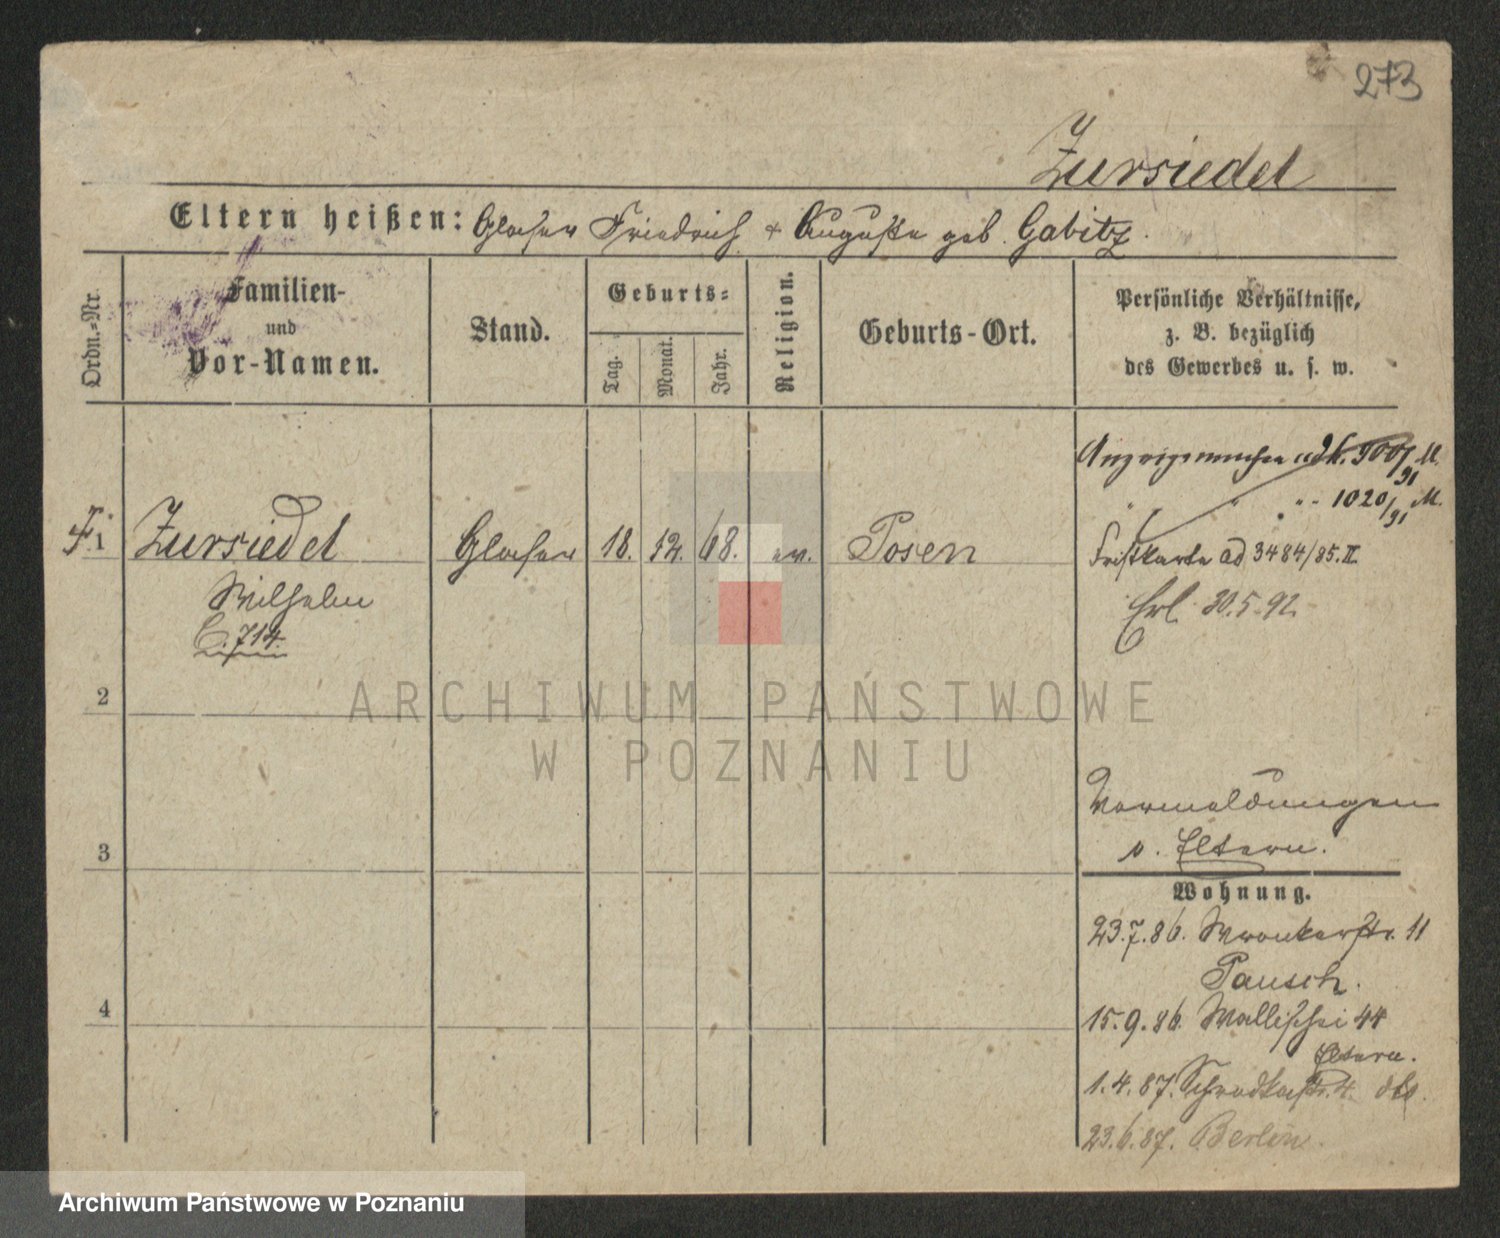 273
Zursiedel
Eltern heißen: Glaser Friedrich + Auguste geb. Gabitz.
Ordn.=Nr.
Familien-
und
Vor-Namen.
Stand.
Geburts=
Tag.
Monat.
Jahr.
Religion.
Geburts-Ort.
Persönliche Verhältnisse,
z. B. bezüglich
des Gewerbes u. s. w.
ad. 900/91 M.
" " " 1020/91 M.
F. 1 Zursiedel Glaser 18. 12. 68. ev. Posen
Wilhelm
C. 714.
ad 3484/85.II.
Erl. 30.5.92
2
3
4
Vormeldungen
v. Eltern.
Wohnung.
23.7.86. Wronkerstr. 11
Pausch.
15.9.86. Wallischei 44
Eltern.
1.4.87. Schrodkastr. 4. dto.
23.6.87. Berlin.
ARCHIWUM PAŃSTWOWE
W POZNANIU
Archiwum Państwowe w Poznaniu